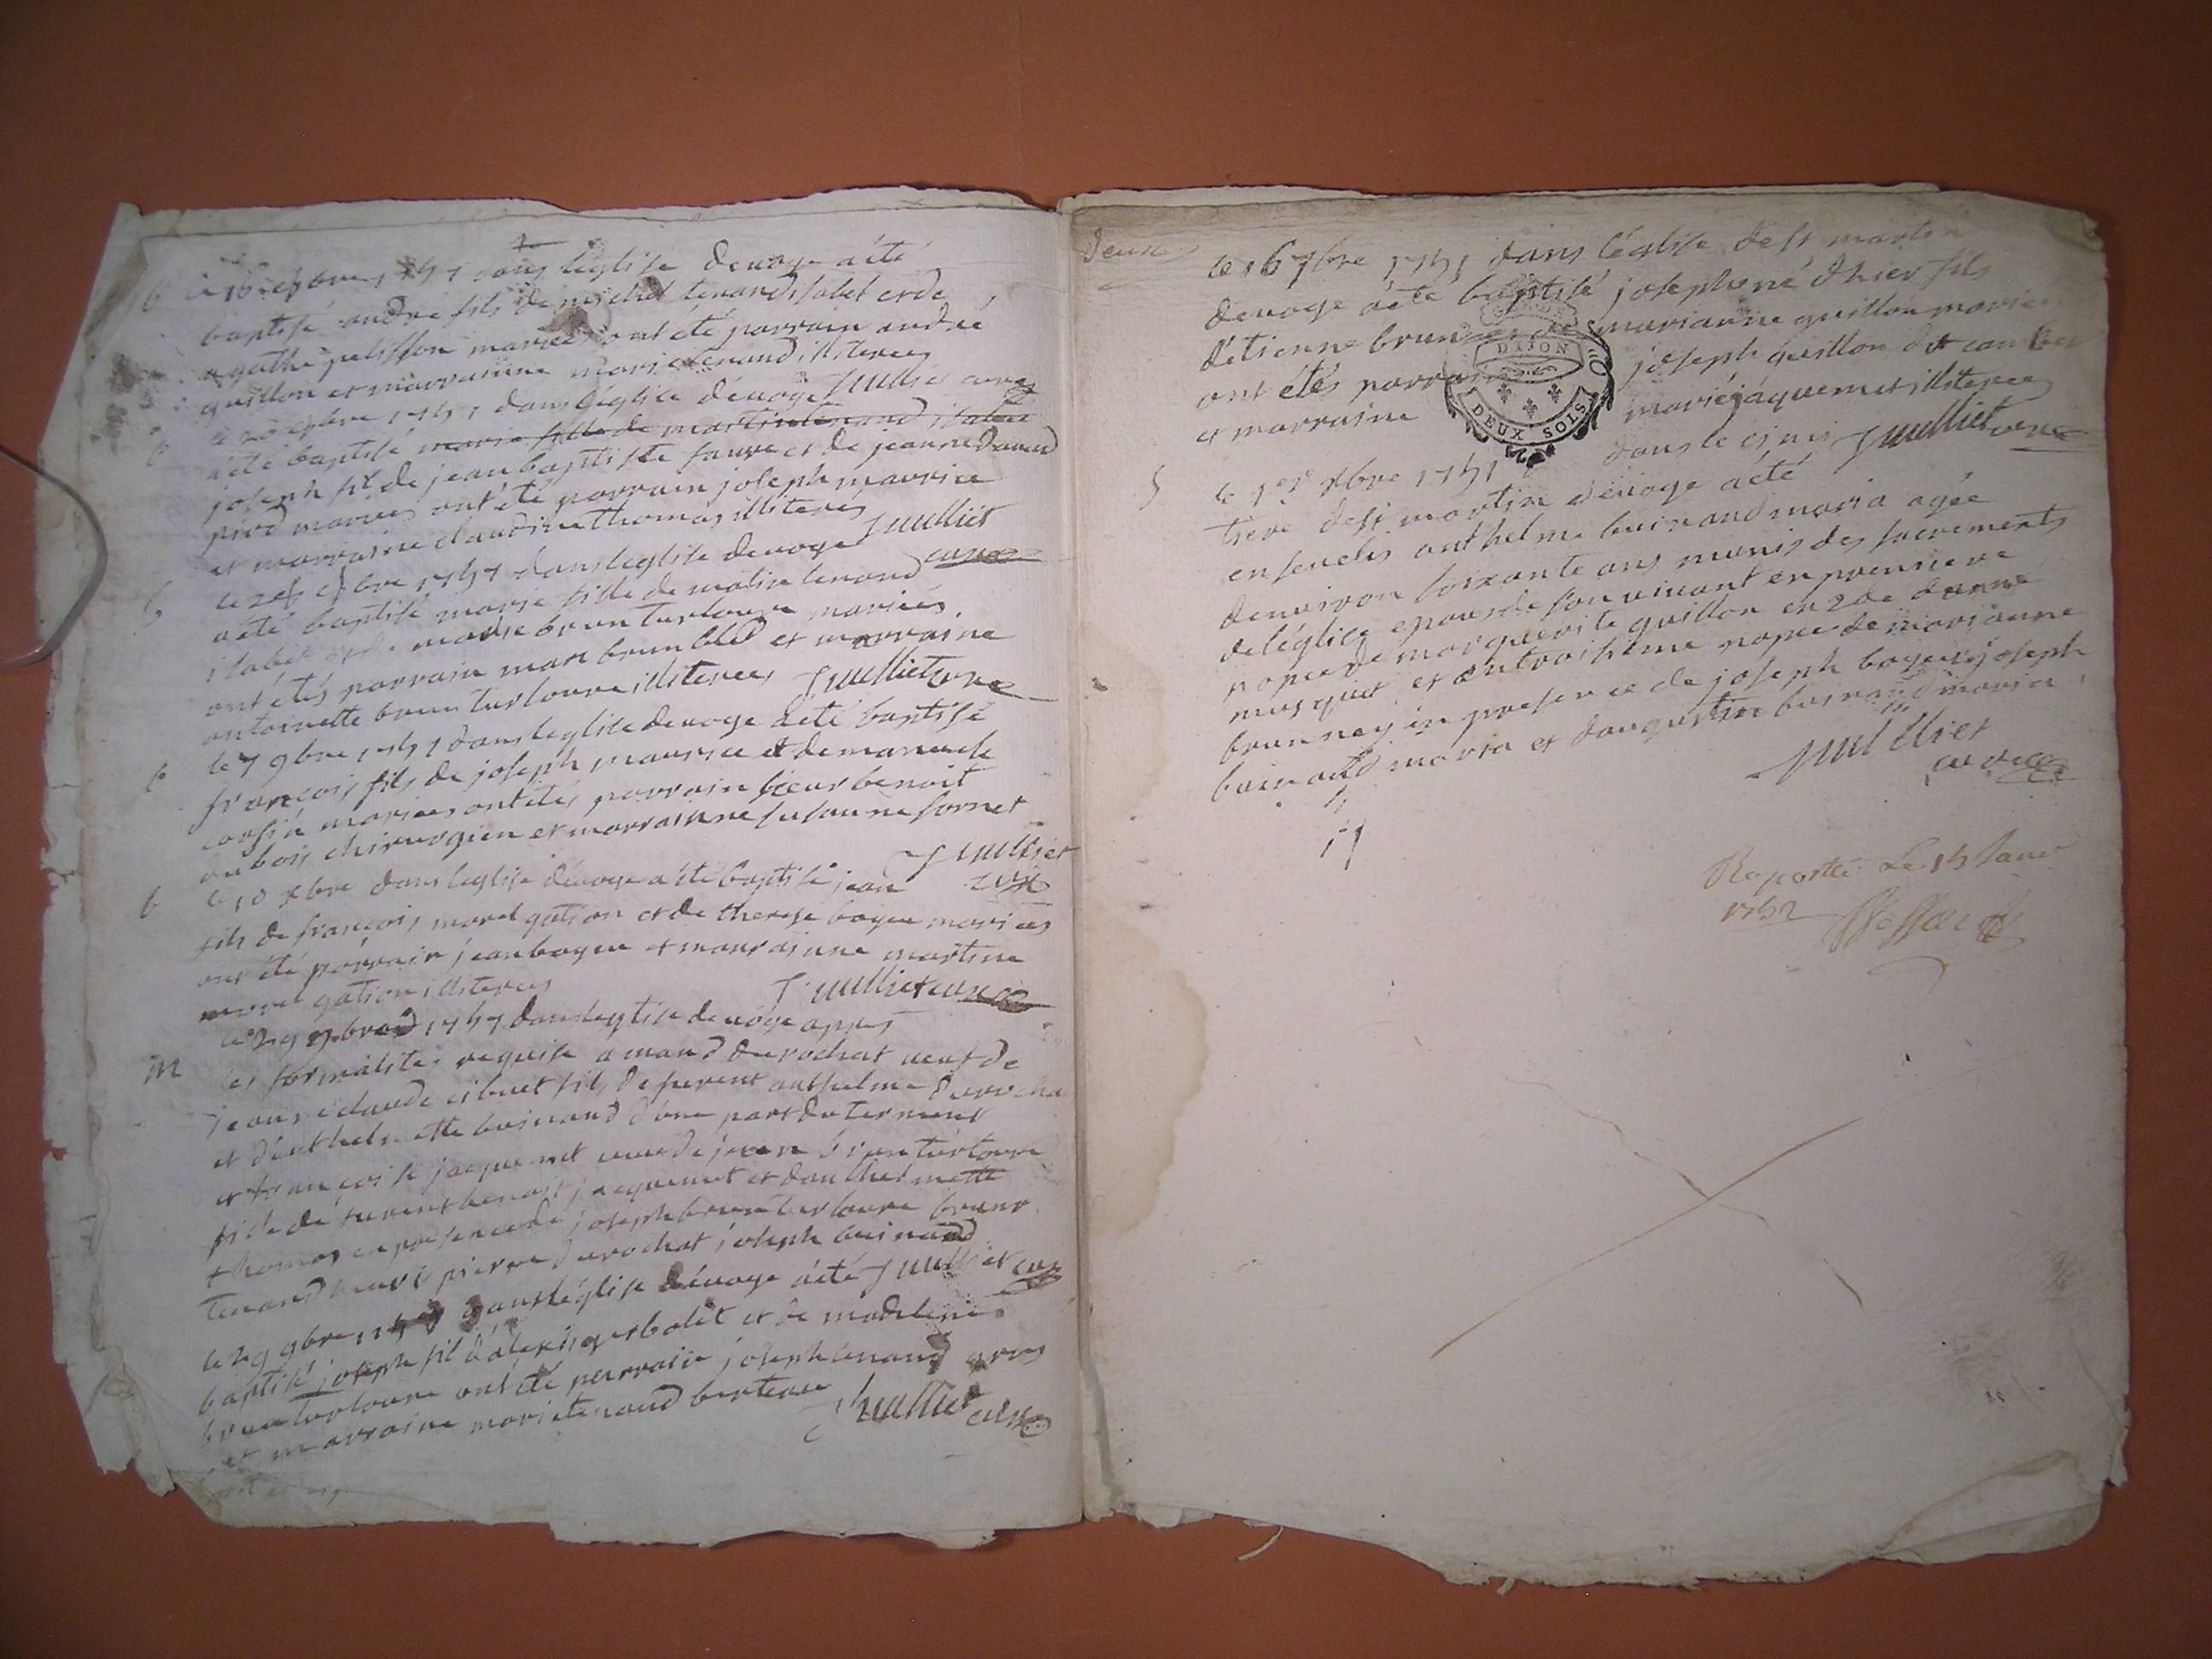 b le 16 1751 dans léglise devoge aété
baptisé andré fils de michel tenand isabel et de
agathe pelisson mariés ont été parrain andré
guillon et marrainne marie tenand illiterees
Juilliet curé
b le 1751 dans léglise devoge
aété baptisé marie fille de martin tenand isabel
joseph fil de jean baptiste favre et de jeanne
mariés ont été parrain joseph maurice
et marraine claudine thomas illiterés
Juilliet
curé
b 1751 dans leglise devoge
aété baptisé marie fille de tenand
isabel et de marie brun turloure mariés
ont étés parrain marc brun bled et marraine
antoinette brun turloure illiterees Juilliet curé
b le 7 9bre 1751 dans leglise devoge aété baptisé
françois fils de joseph maurice et de
mariés ont étés parrain sieur benoit
dubois chirurgien et marrainne susanne sornet
Juilliet
curé
b le 10 xbre dans leglise devoge a été baptisé jean
fils de françois morel gation et de therese boyer mariés
ont été parrain jean boyer et marrainne martine
morel gation illiterees Juilliet curé
m le 29 9bre 1751 dans leglise devoge appres
les formalités requise amand durochat veuf de
jeanne claude cibuet fils de furent anthelme durochat
et d'anthelmette buinand d'une part
et françoise jaquemet veuve de jean brun turloure
fille de furent benoit jaquemet et d'anthelmette
thomas en presence de joseph brun turloure brunr
tenand pierre durochat joseph buinand
Juilliet curé
le 29 9bre 1751 dans léglise devoge aété
baptisé joseph fil d'alexis gerbolet et de madeleine
brun turloure ont été parrain joseph tenand gros
et marraine marie tenand berteau
Juilliet curé
deux
le 16 7bre 1751 dans léglise de st martin
devoge aété baptisé joseph né d'hier fils
d'etienne brun et de marianne guillon mariés
ont étés parrain joseph guillon dit
et marraine marie jaquemet illiterees
Juilliet curé
DIJON
DEUX SOLS
S le 1er xbre 1751 dans le cimis
tiere de st martin devoge aété
ensevelis anthelme buinand maria agée
denviron soixante ans munis des sacrements
deléglise epous de son vivant en premiere
nopce de marguerite guillon en 2de d'anne
musquiet et en troisieme nopce de marianne
brunney en presence de joseph boyer joseph
buinand maria et d'augustin buinand maria
Juilliet
curé
Raporté Le 15 Janer
1752